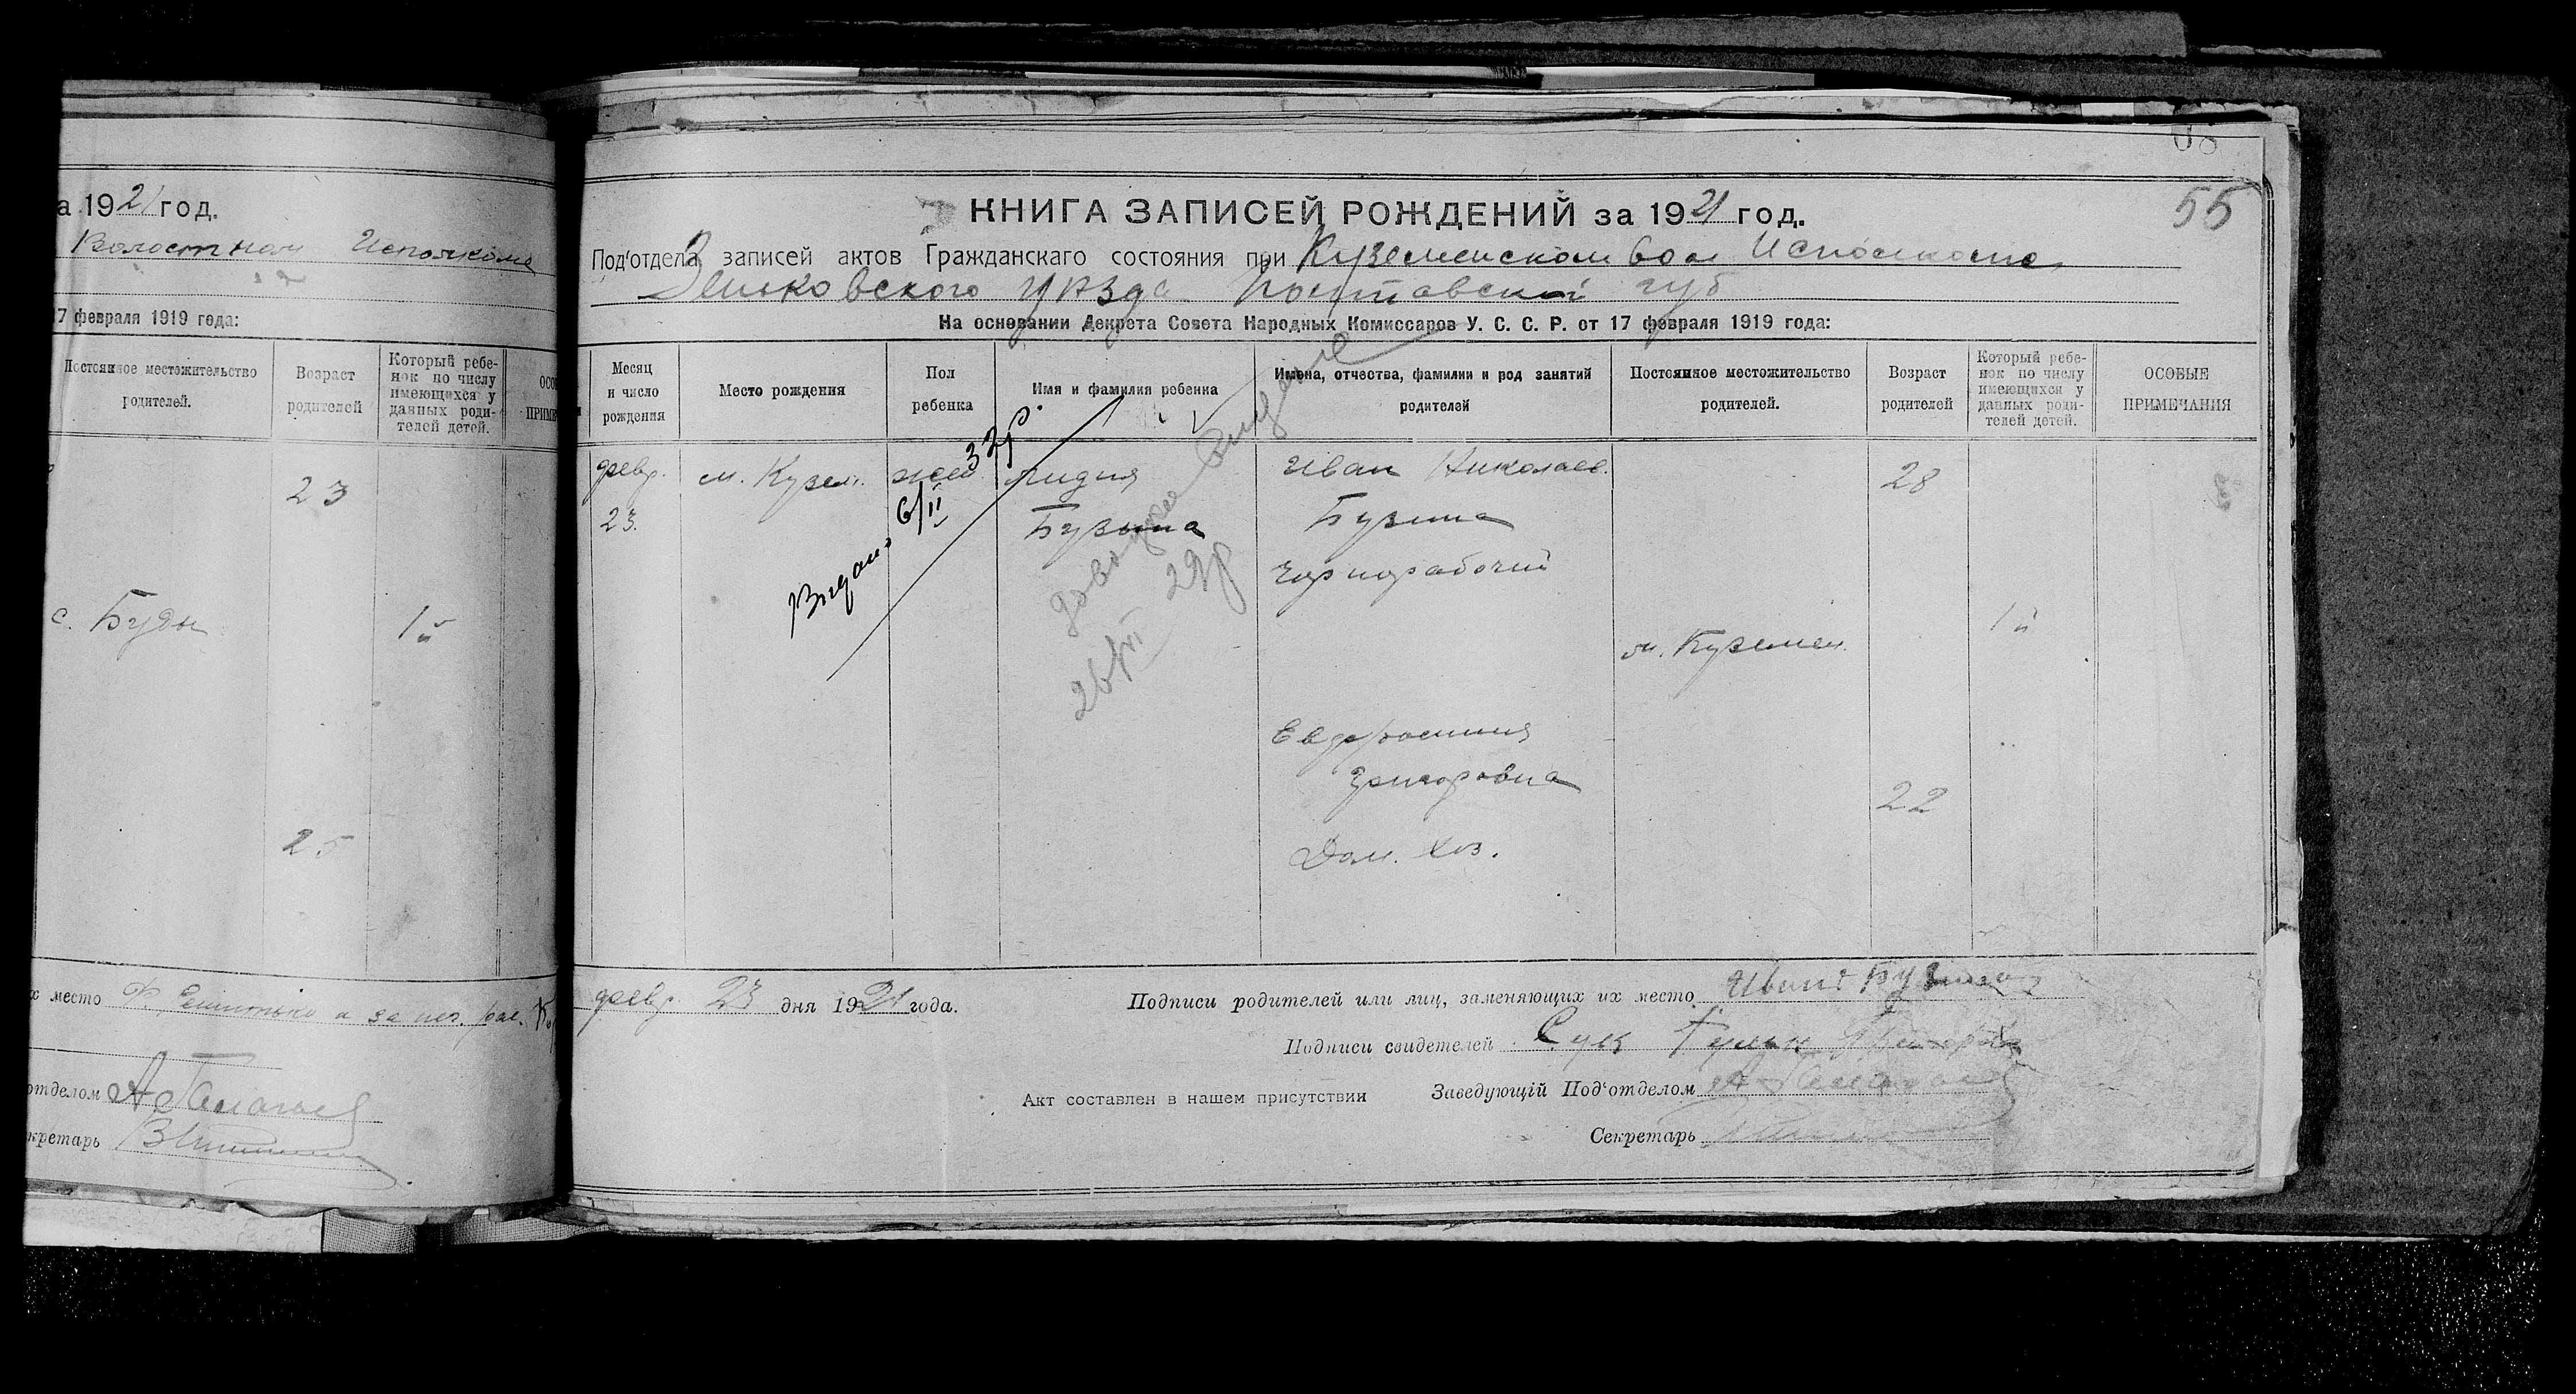 а 1921 год.
Волостном Исполкоме
17 февраля 1919 года:
Постоянное местожительство родителей.
Возраст родителей
Который ребенок по числу имеющихся у данных родителей детей.
23
с. Буды
1й
25
х место
отделом
кретарь
08
55
КНИГА ЗАПИСЕЙ РОЖДЕНИЙ за 1921 год.
Под'отдела записей актов Гражданскаго состояния при Куземенском вол Исполкоме
Зеньковского уезда Полтавской губ
На основании Декрета Совета Народных Комиссаров У. С. С. Р. от 17 февраля 1919 года:
Месяц и число рождения
Место рождения
Пол ребенка
Имя и фамилия ребенка
Имена, отчества, фамилии и род занятий родителей
Постоянное местожительство родителей.
Возраст родителей
Который ребенок по числу имеющихся у данных родителей детей.
ОСОБЫЕ ПРИМЕЧАНИЯ
февр.
23.
м. Кузем.
жен.
Лидия
Бузына
Иван Николаев.
Бузына
Чорнорабочий
м. Куземен.
28
1й
Евфросиния
Григоровна
Дом. хоз.
22
Видано 6/II 32р.
26/VI 29р
февр. 23 дня 1921 года.
Подписи родителей или лиц, заменяющих их место Иван Бузына
Подписи свидетелей
Акт составлен в нашем присутствии
Заведующій Под'отделом
Секретарь